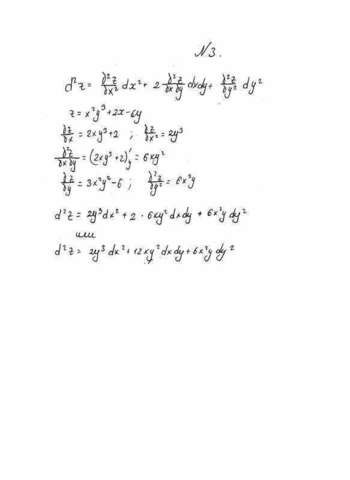 N3.
d²z = ∂²z/∂x² dx² + 2 ∂²z/∂x∂y dxdy + ∂²z/∂y² dy²
z = x²y³ + 2x - 6y
∂z/∂x = 2xy³ + 2 ; ∂²z/∂x² = 2y³
∂²z/∂x∂y = (2xy³ + 2)'y = 6xy²
∂z/∂y = 3x²y² - 6 ; ∂²z/∂y² = 6x²y
d²z = 2y³dx² + 2 · 6xy² dxdy + 6x²y dy²
или
d²z = 2y³ dx² + 12xy² dxdy + 6x²y dy²